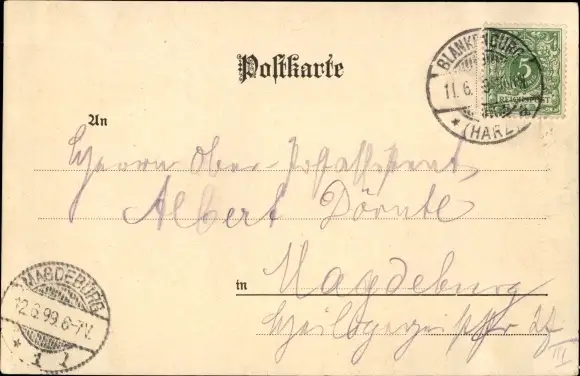 Postkarte
BLANKENBURG
11.6.
(HARZ)
5
REICHSPOST
An
Herrn Ober-Postassistent
Albert Dörnte
in Magdeburg
III
MAGDEBURG
12.6.99.6-7V.
* 1 1